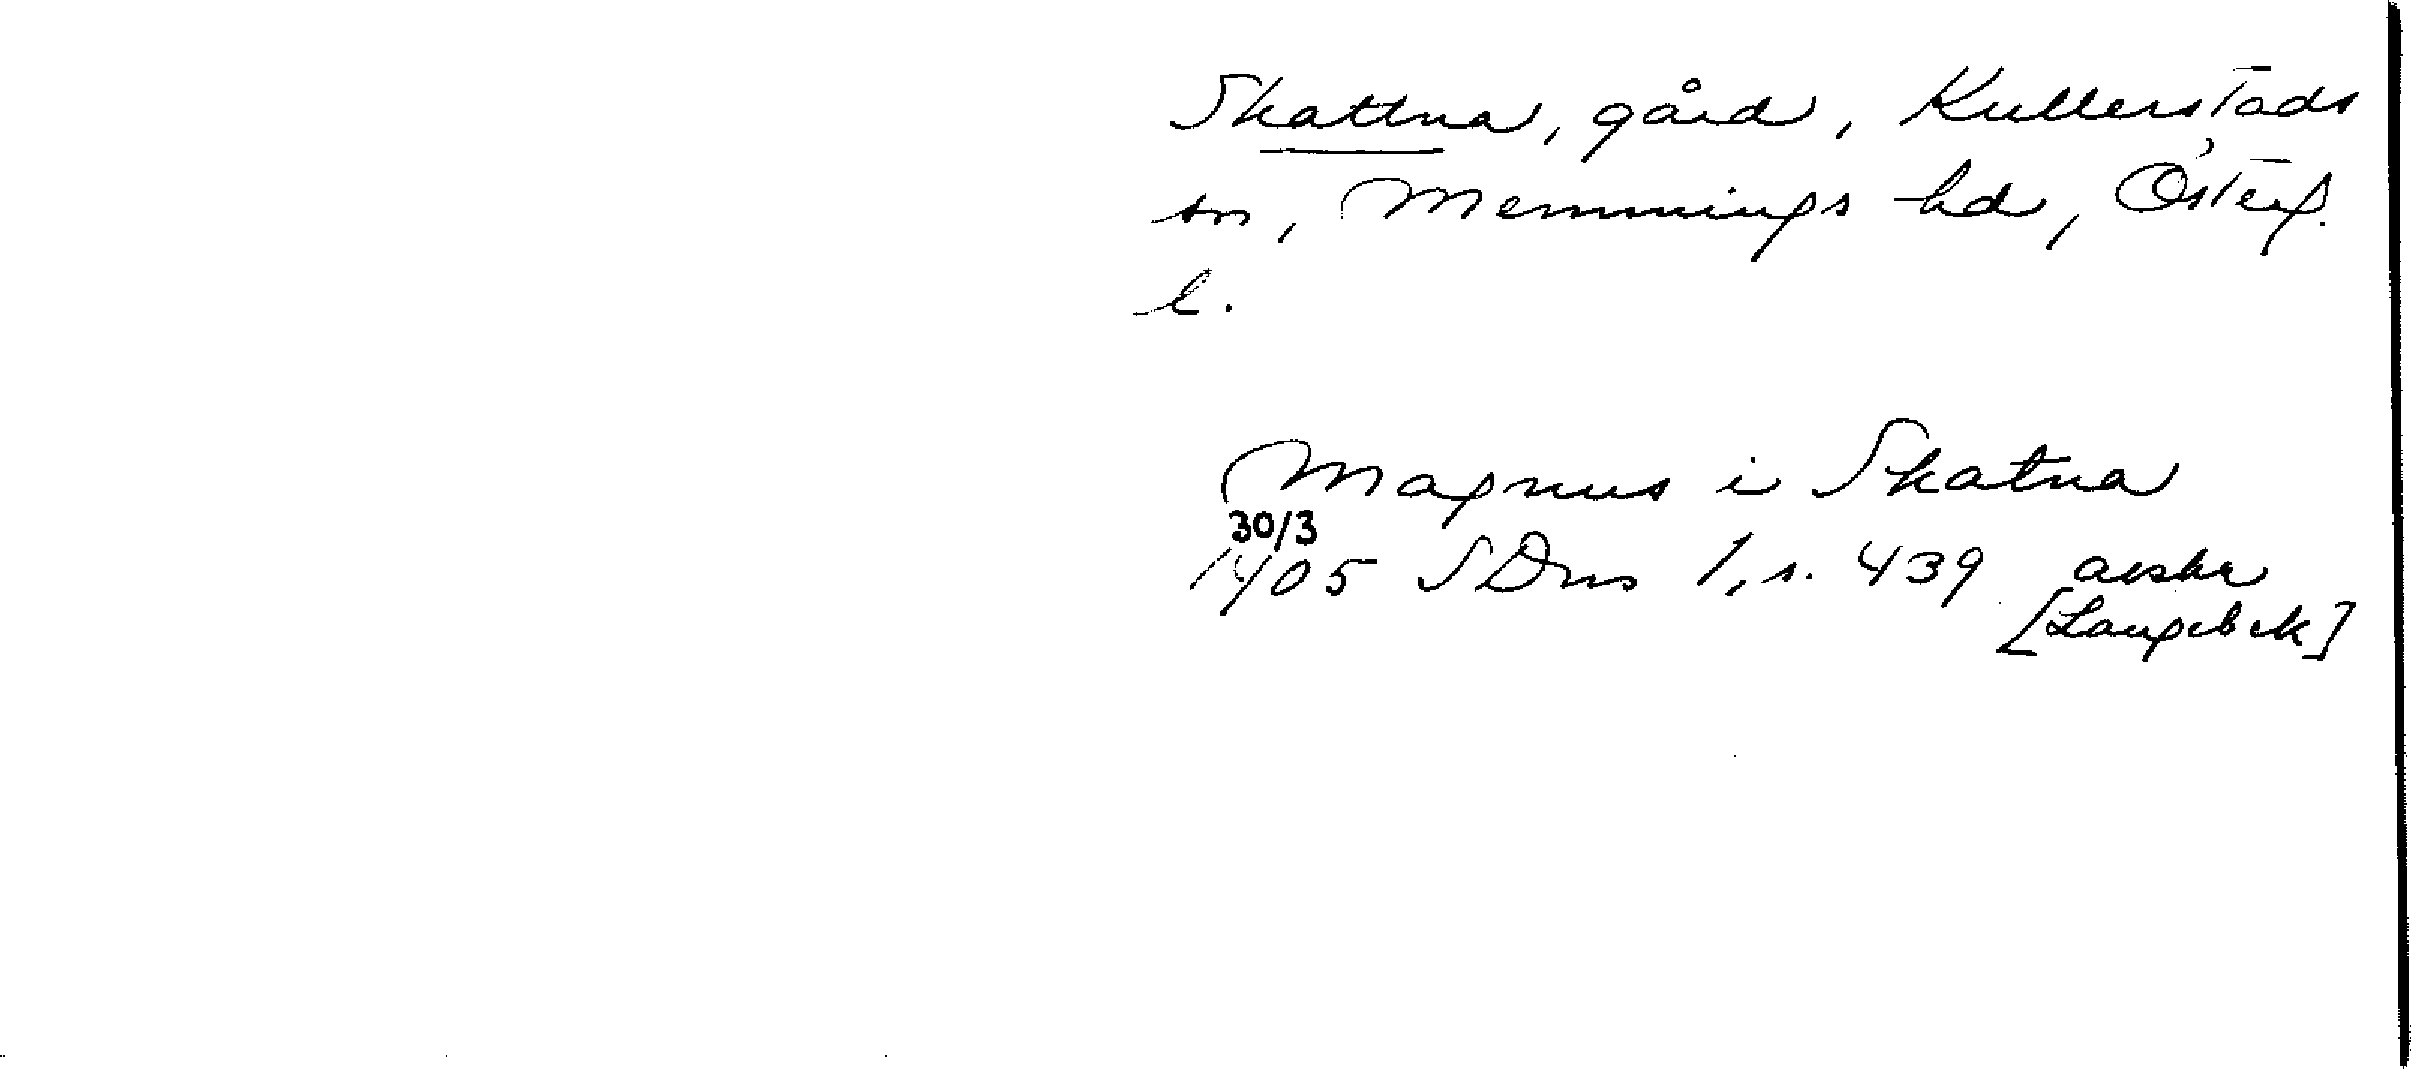 Skattna, gård, Kullerstads
sn, Memmings hd, Österg.
l.
Magnus i Skatna
30/3
1405 SDns 1, s. 439 avskr
[Langebek]